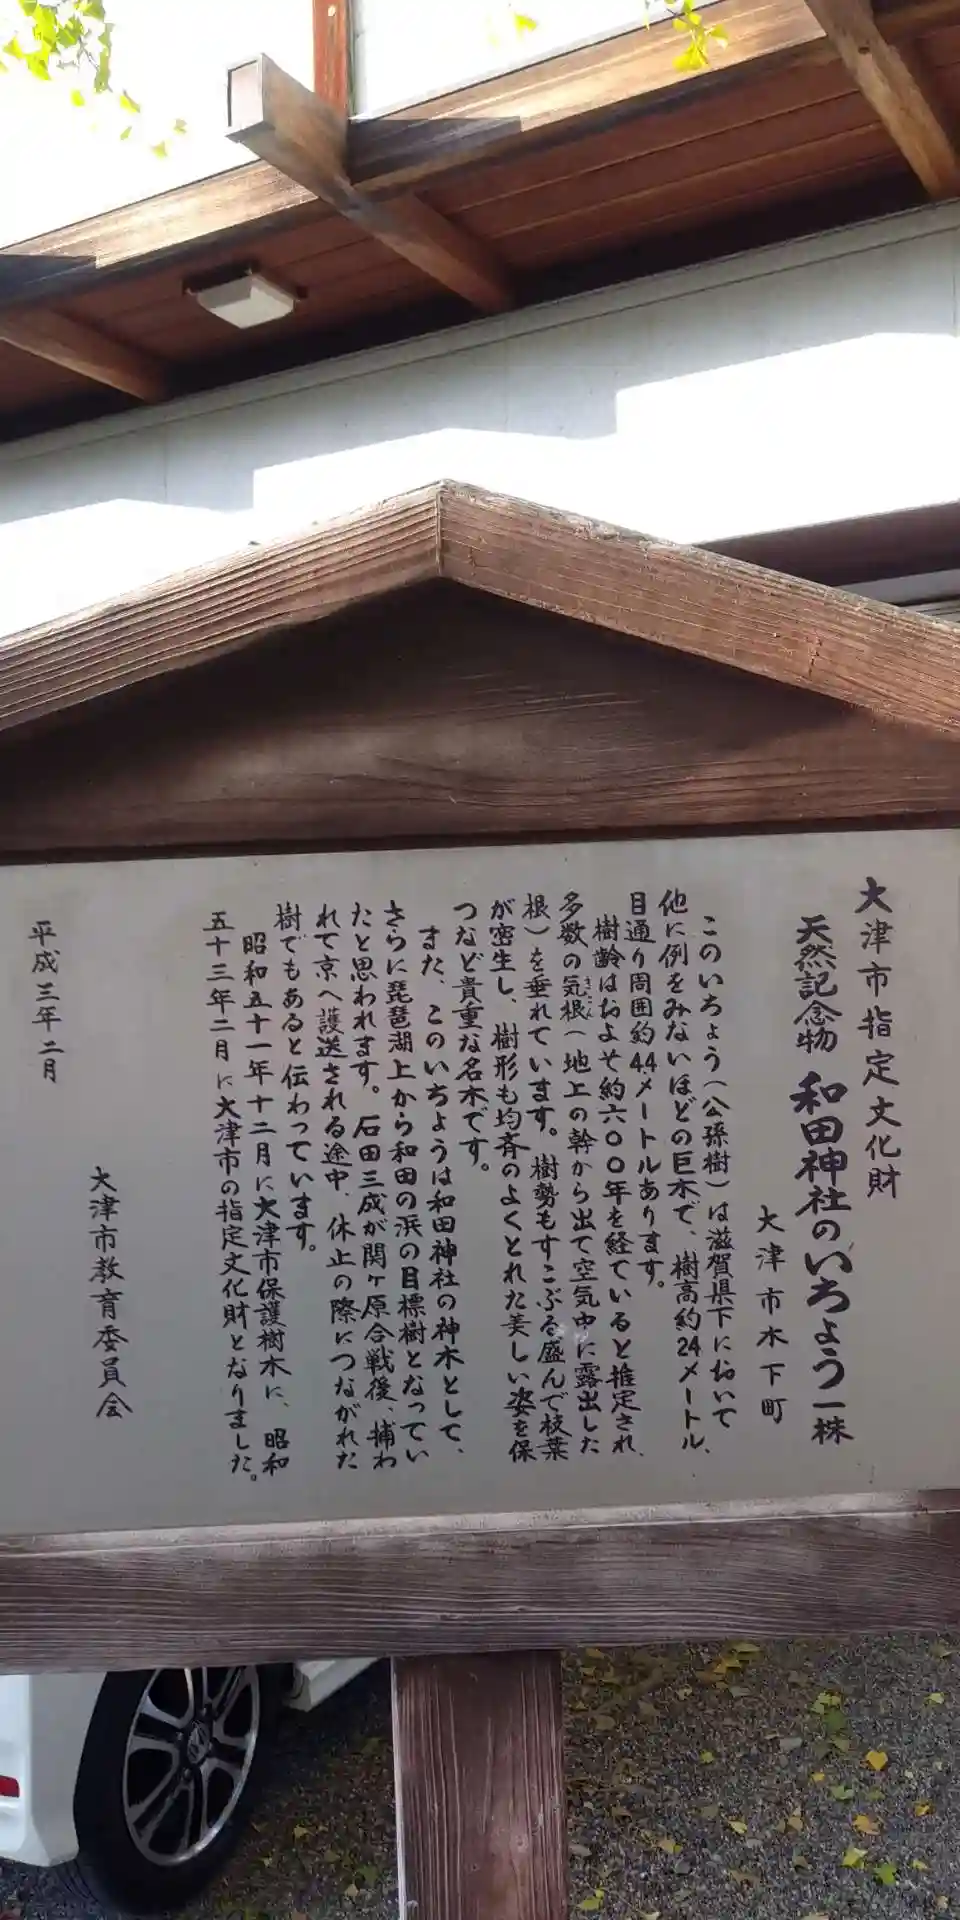 大津市指定文化財
天然記念物 和田神社のいちょう一株
大津市木下町
このいちょう(公孫樹)は滋賀県下において、
他に例をみないほどの巨木で、樹高約24メートル、
目通り周囲約4.4メートルあります。
樹齢はおよそ約六〇〇年を経ていると推定され、
多数の気根(地上の幹から出て空気中に露出した
きこん
根)を垂れています。樹勢もすこぶる盛んで枝葉
が密生し、樹形も均斉のよくとれた美しい姿を保
つなど貴重な名木です。
また、このいちょうは和田神社の神木として、
さらに琵琶湖上から和田の浜の目標樹となってい
たと思われます。石田三成が関ヶ原合戦後、捕わ
れて京へ護送される途中、休止の際につながれた
樹でもあると伝わっています。
昭和五十一年十二月に大津市保護樹木に、昭和
五十三年二月に大津市の指定文化財となりました。
大津市教育委員会
平成三年二月